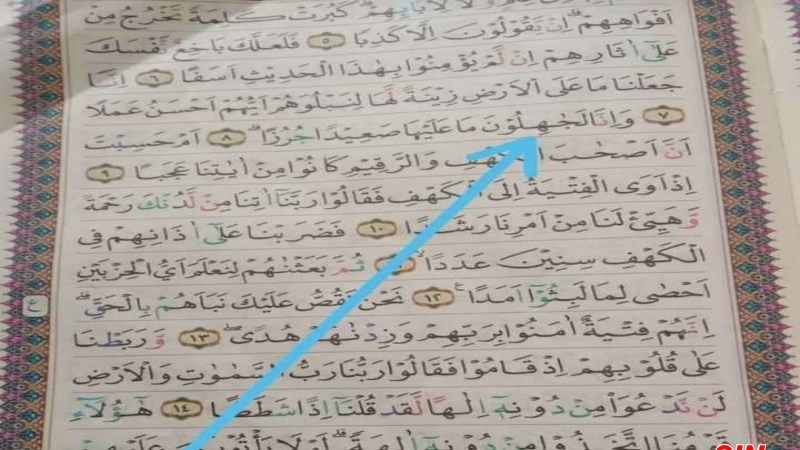 وَّلَا لِاٰبَاۤىِٕهِمْۗ كَبُرَتْ كَلِمَةً تَخْرُجُ مِنْ
اَفْوَاهِهِمْۗ اِنْ يَّقُوْلُوْنَ اِلَّا كَذِبًا ٥ فَلَعَلَّكَ بَاخِعٌ نَّفْسَكَ
عَلٰٓى اٰثَارِهِمْ اِنْ لَّمْ يُؤْمِنُوْا بِهٰذَا الْحَدِيْثِ اَسَفًا ٦ اِنَّا
جَعَلْنَا مَا عَلَى الْاَرْضِ زِيْنَةً لَّهَا لِنَبْلُوَهُمْ اَيُّهُمْ اَحْسَنُ عَمَلًا
٧ وَاِنَّا لَجٰهِلُوْنَ مَا عَلَيْهَا صَعِيْدًا جُرُزًاۗ ٨ اَمْ حَسِبْتَ
اَنَّ اَصْحٰبَ الْكَهْفِ وَالرَّقِيْمِ كَانُوْا مِنْ اٰيٰتِنَا عَجَبًا ٩
اِذْ اَوَى الْفِتْيَةُ اِلَى الْكَهْفِ فَقَالُوْا رَبَّنَآ اٰتِنَا مِنْ لَّدُنْكَ رَحْمَةً
وَّهَيِّئْ لَنَا مِنْ اَمْرِنَا رَشَدًا ١٠ فَضَرَبْنَا عَلٰٓى اٰذَانِهِمْ فِى
الْكَهْفِ سِنِيْنَ عَدَدًاۙ ثُمَّ بَعَثْنٰهُمْ لِنَعْلَمَ اَيُّ الْحِزْبَيْنِ
اَحْصٰى لِمَا لَبِثُوْٓا اَمَدًا ١٢ نَحْنُ نَقُصُّ عَلَيْكَ نَبَاَهُمْ بِالْحَقِّۗ
اِنَّهُمْ فِتْيَةٌ اٰمَنُوْا بِرَبِّهِمْ وَزِدْنٰهُمْ هُدًىۖ ١٣ وَّرَبَطْنَا
عَلٰى قُلُوْبِهِمْ اِذْ قَامُوْا فَقَالُوْا رَبُّنَا رَبُّ السَّمٰوٰتِ وَالْاَرْضِ
لَنْ نَّدْعُوَا۟ مِنْ دُوْنِهٖٓ اِلٰهًا لَّقَدْ قُلْنَآ اِذًا شَطَطًا ١٤ هٰٓؤُلَاۤءِ
قَوْمُنَا اتَّخَذُوْا مِنْ دُوْنِهٖٓ اٰلِهَةًۗ لَوْلَا يَأْتُوْنَ عَلَيْهِمْ
ع